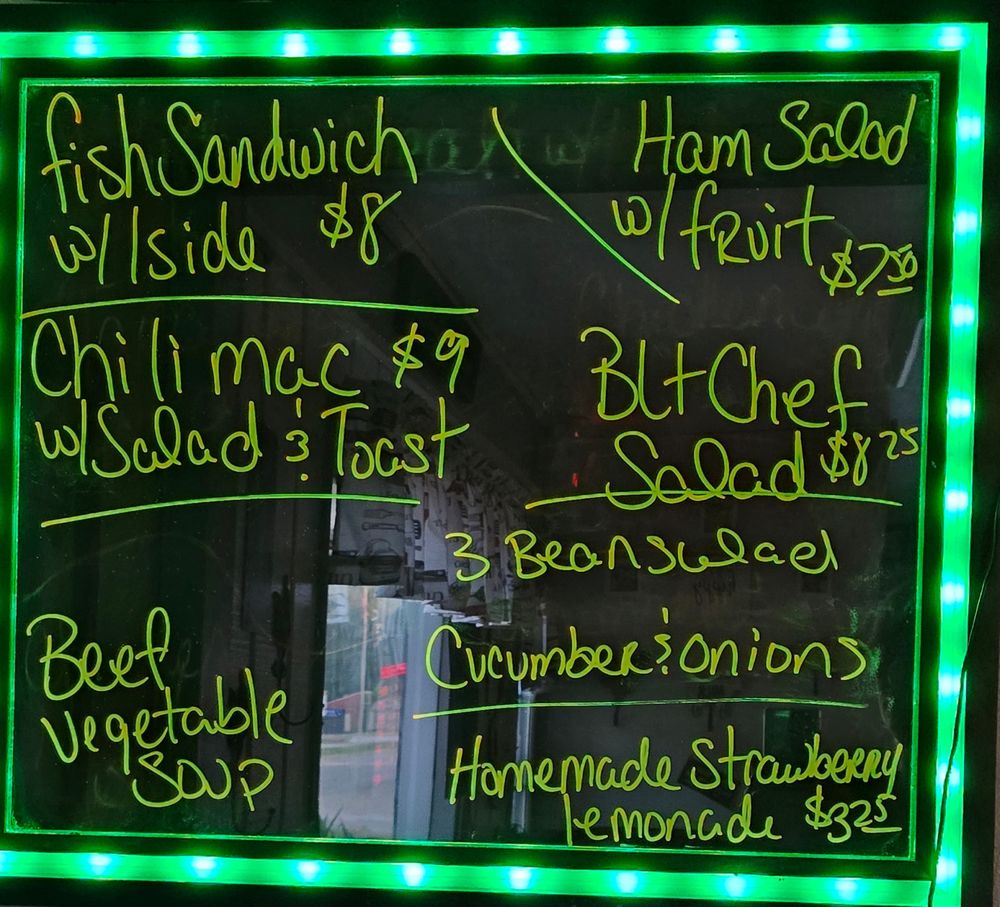 fish Sandwich
w/1 side $8
Ham Salad
w/fruit $7.50
Chili mac $9
w/Salad & Toast
Blt Chef
Salad $8.25
3 Bean salad
Cucumber & onions
Beef
vegetable
Soup
Homemade Strawberry
lemonade $3.25